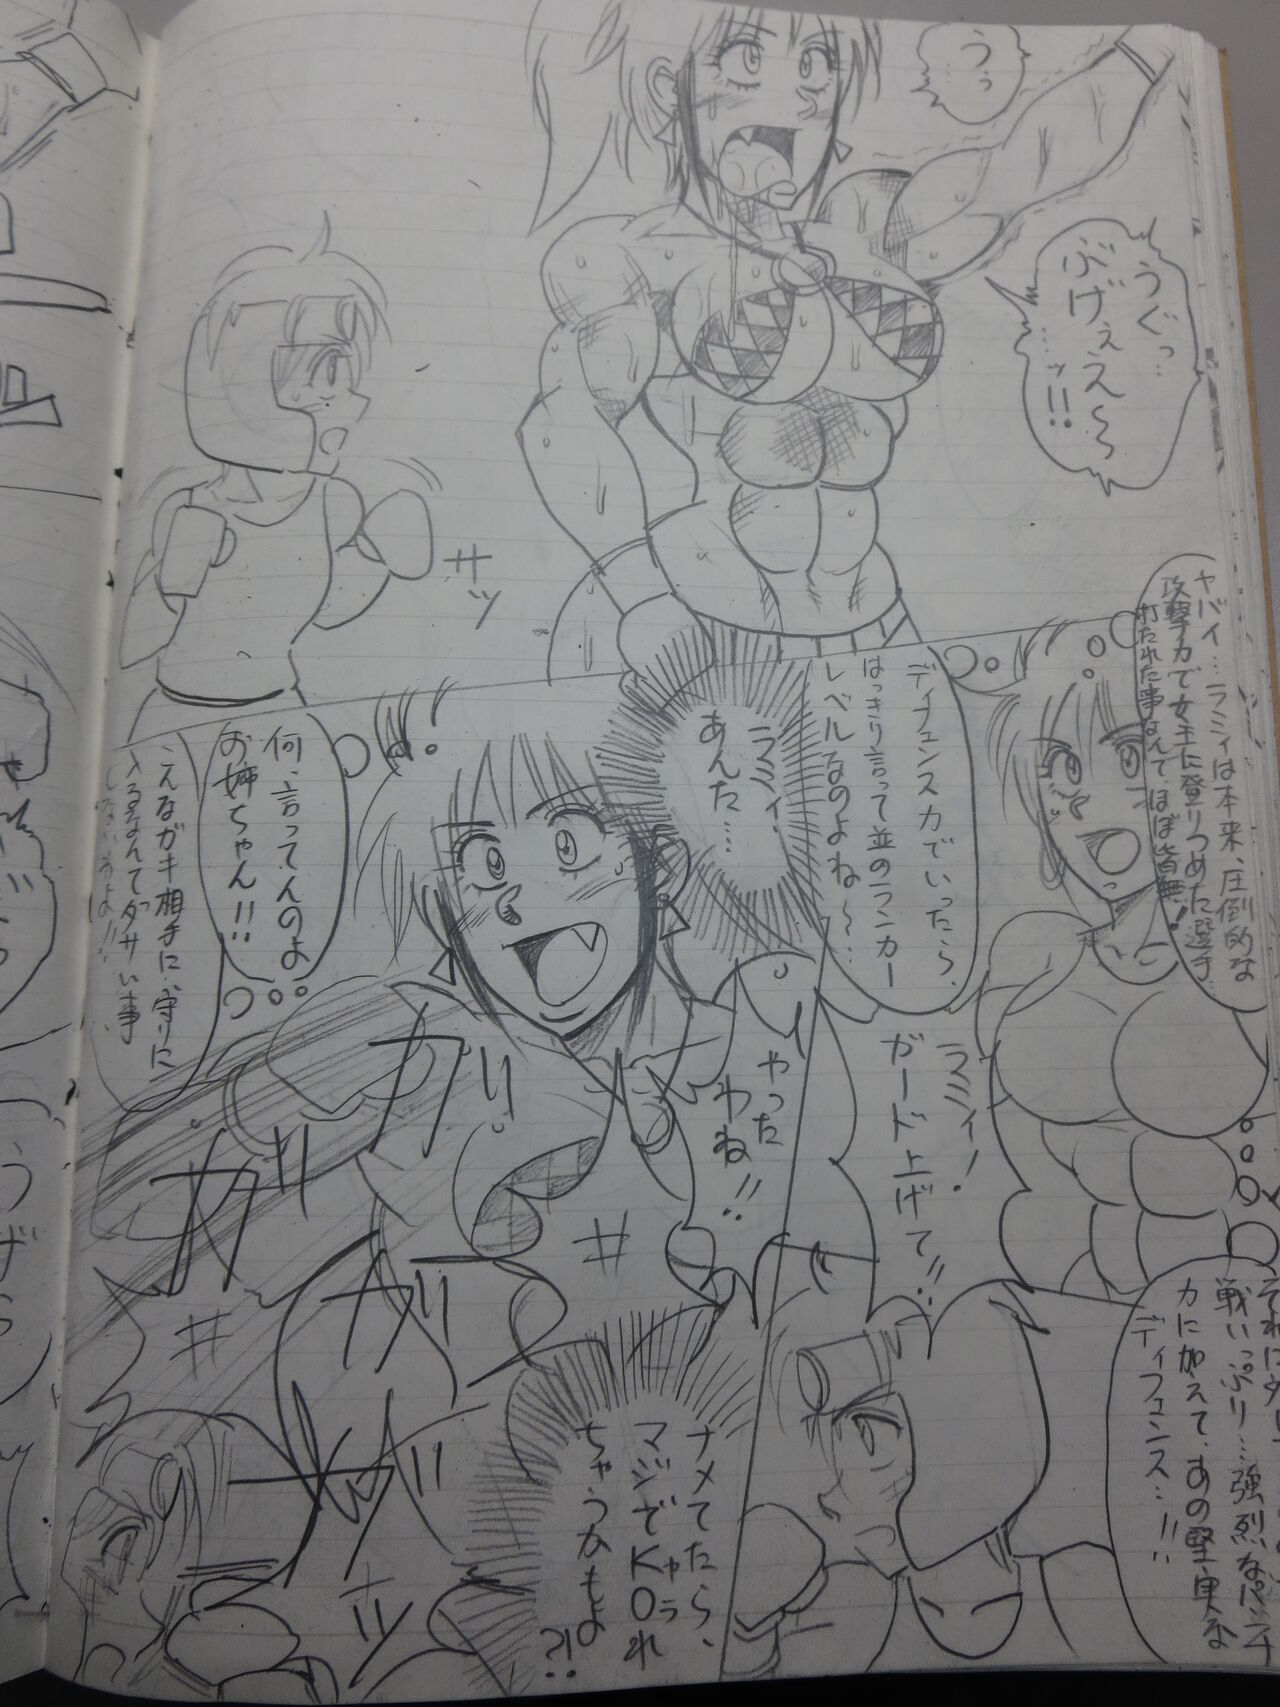 うぅ
うぐっ…
ぶげぇえ〜っ
…ッ!!
サッ
ヤバイ…ラミィは本来、圧倒的な
攻撃力で女王に登りつめた選手…
打たれた事なんて、ほぼ皆無!
ディフェンス力でいったら、
はっきり言って並のランカー
レベルなのよね〜…
ラミィ…
あんた…
何、言ってんのよ
お姉ちゃん!!
こんなガキ相手に、守りに
入るなんてダサい事
しないわよ!!
それに
戦いっぷり…強烈なパンチ
力に加えて、あの堅実な
ディフェンス…!!
ラミィ!
ガード上げて!!
やった
わね!!
ガリ
ナメてたら、
マジでKOれ
ちゃうかもよ
?!